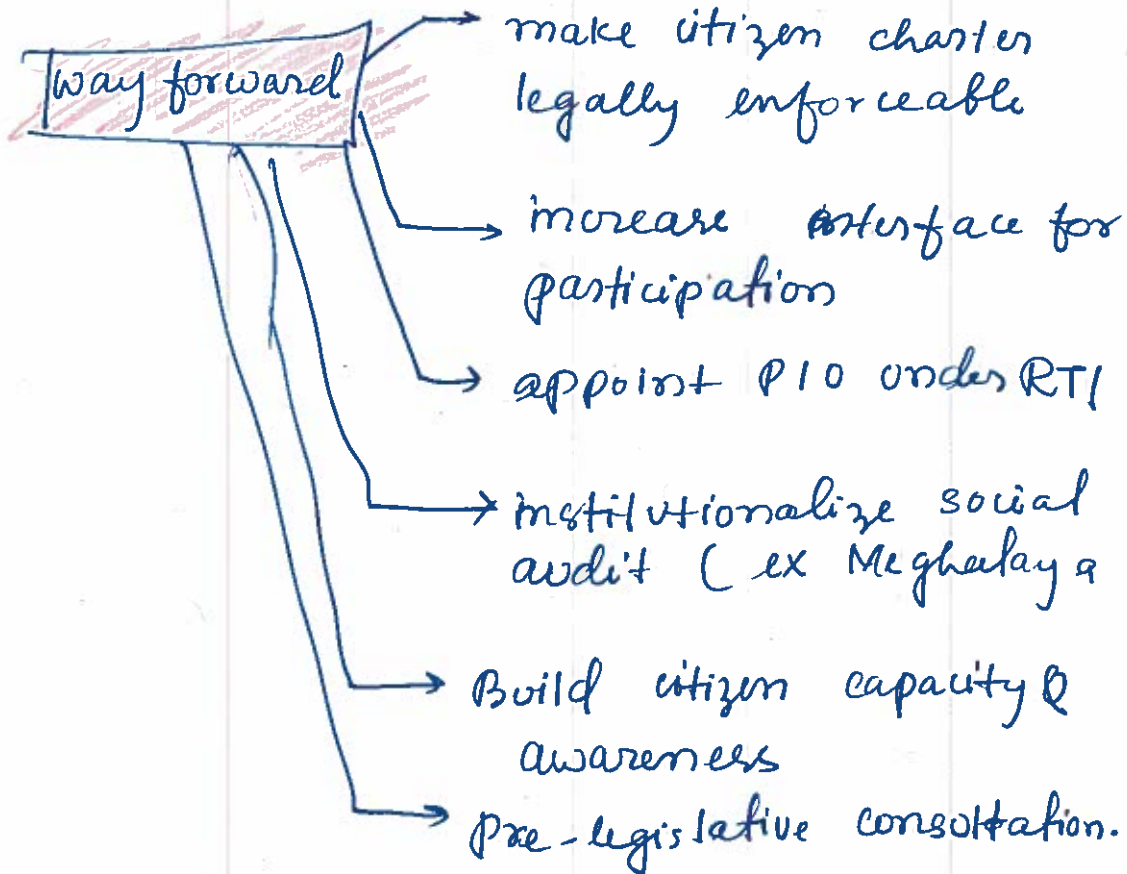 way forward
make citizen charter
legally enforceable
increase interface for
participation
appoint PIO under RTI
institutionalize social
audit ( ex Meghalaya
Build citizen capacity &
awareness
Pre-legislative consultation.